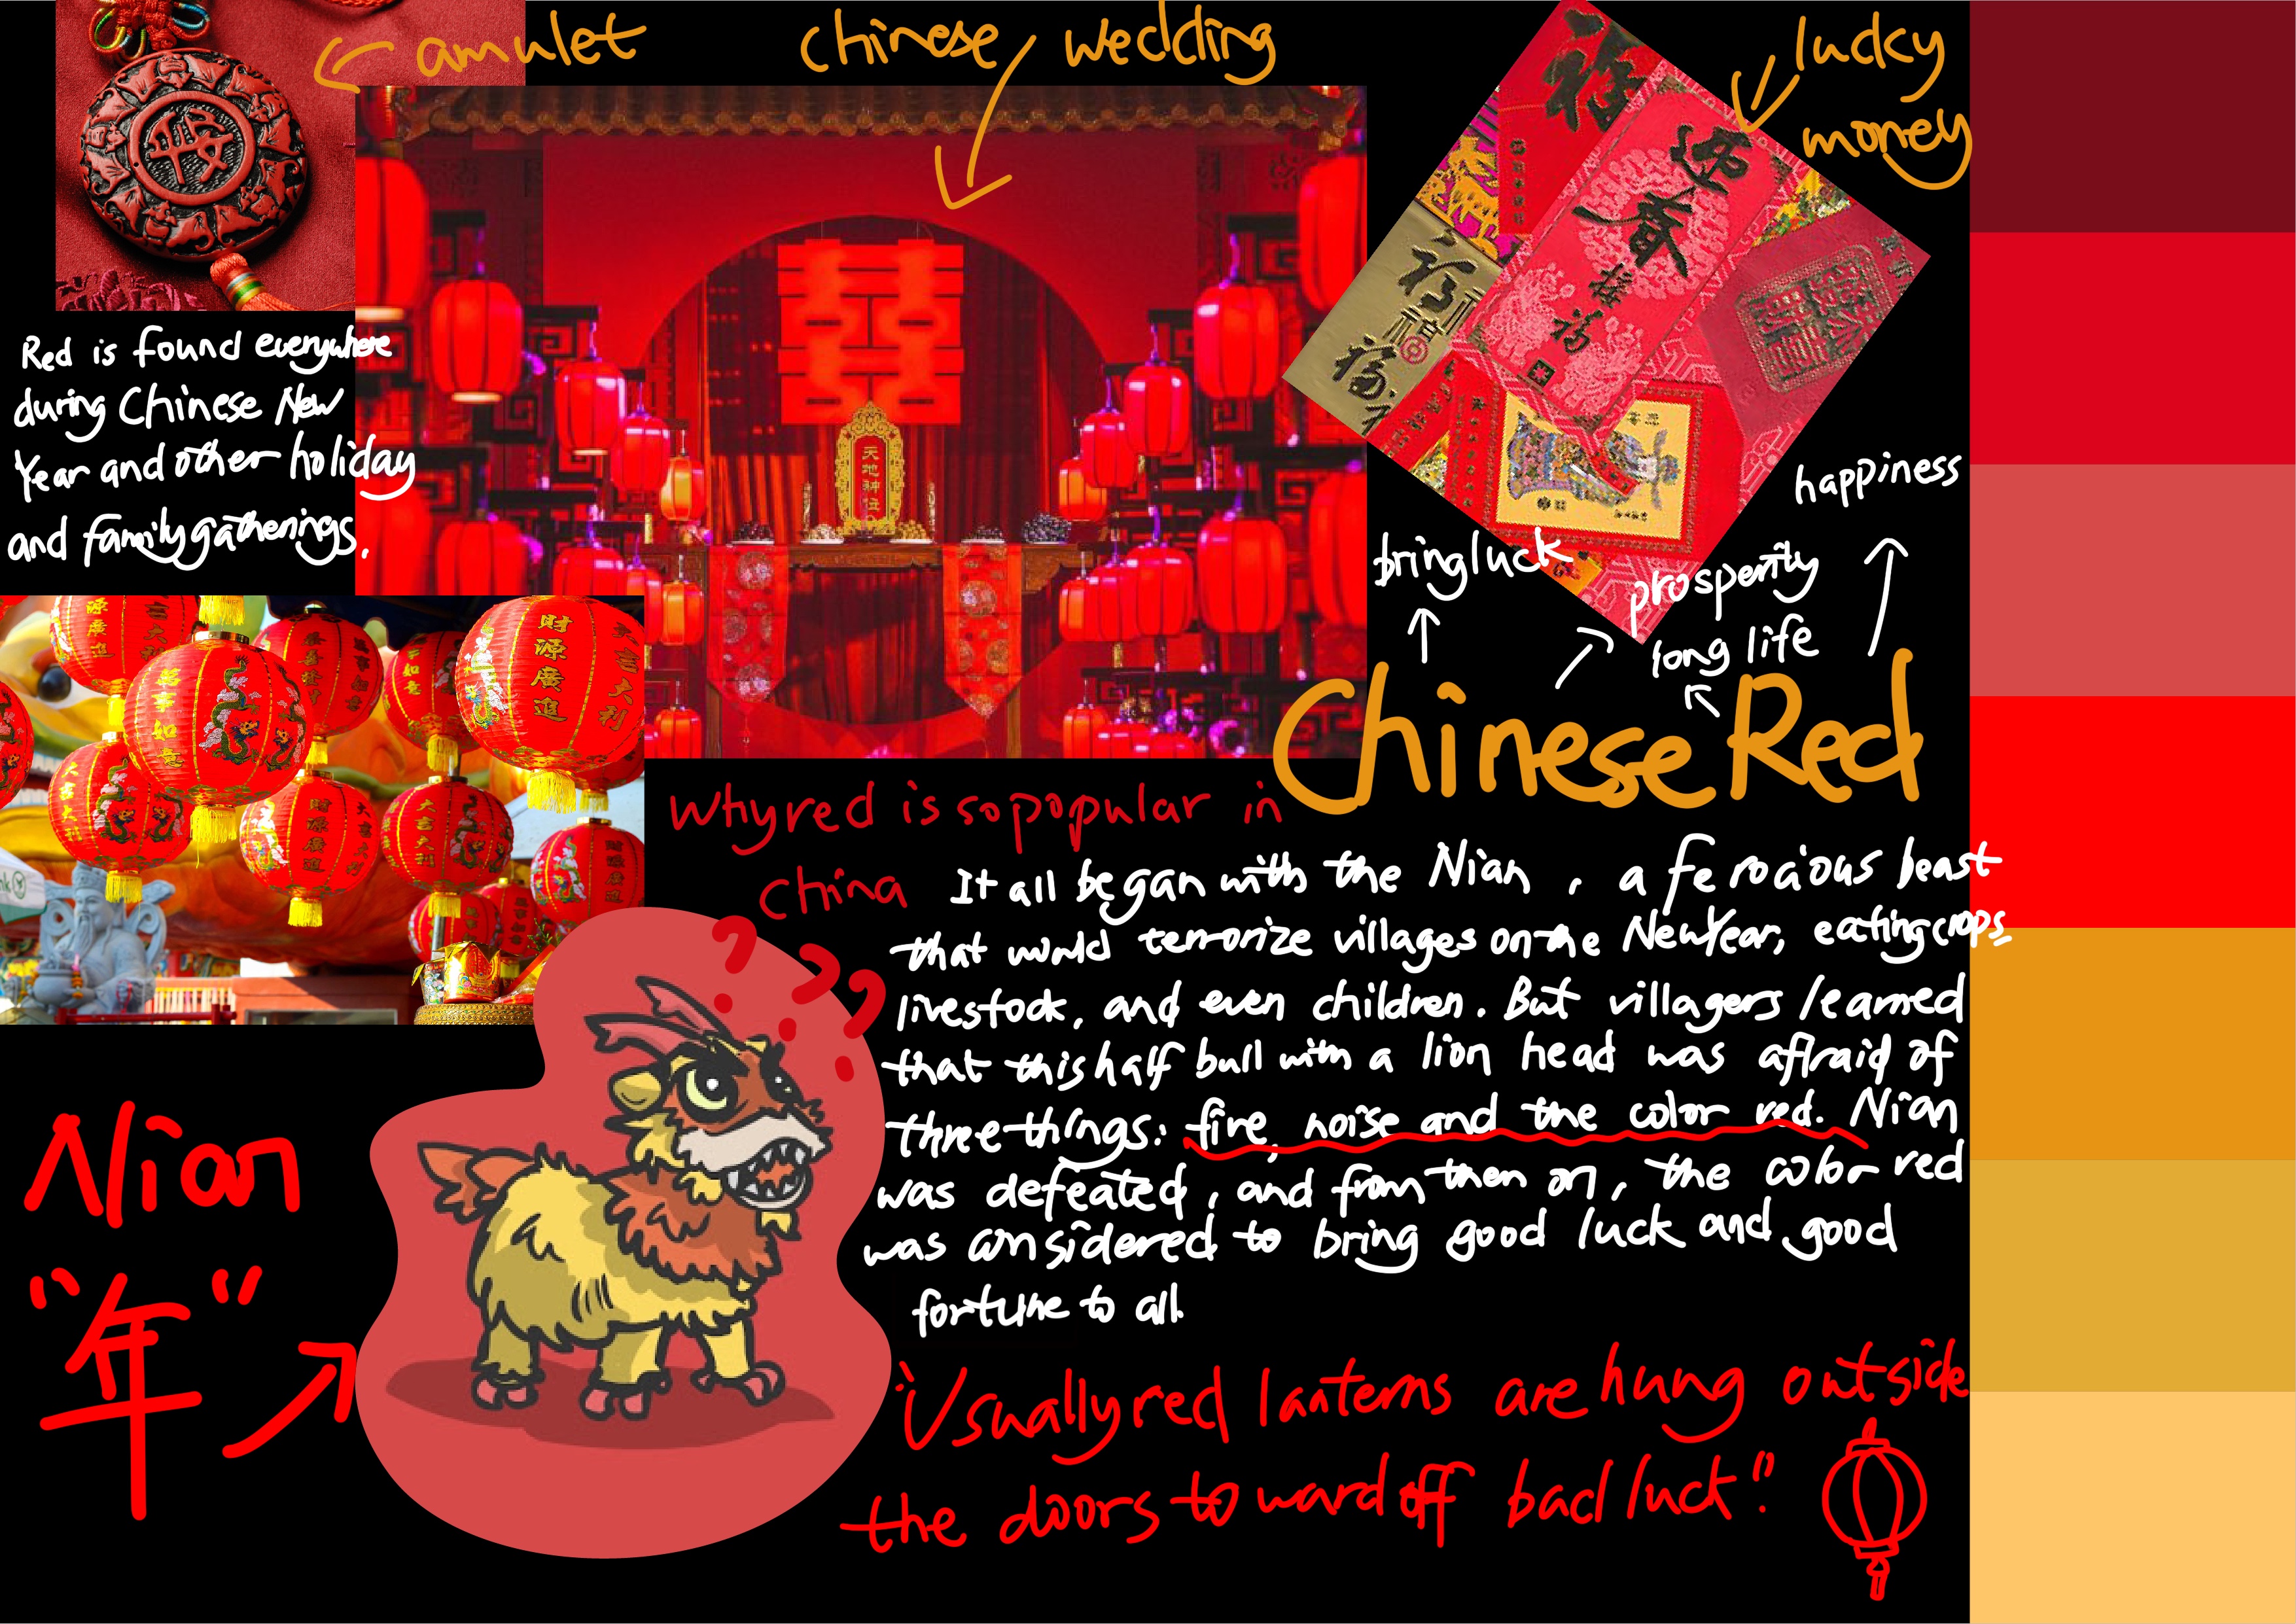 amulet
chinese wedding
lucky
money
平安
福
迎春接福
福
福
囍
天地神位
Red is found everywhere
during Chinese New
Year and other holiday
and family gatherings.
happiness
bring luck
prosperity
long life
Chinese Red
財源廣進
大吉大利
萬事如意
財源廣進
大吉大利
大吉大利
財源廣進
大吉大利
Why red is so popular in
China
???
It all began with the Nian, a ferocious beast
that would terrorize villages on the New Year, eating crops,
livestock, and even children. But villagers learned
that this half bull with a lion head was afraid of
three things: fire, noise and the color red. Nian
was defeated, and from then on, the color red
was considered to bring good luck and good
fortune to all.
Nian
"年"
"Usually red lanterns are hung outside
the doors to ward off bad luck"